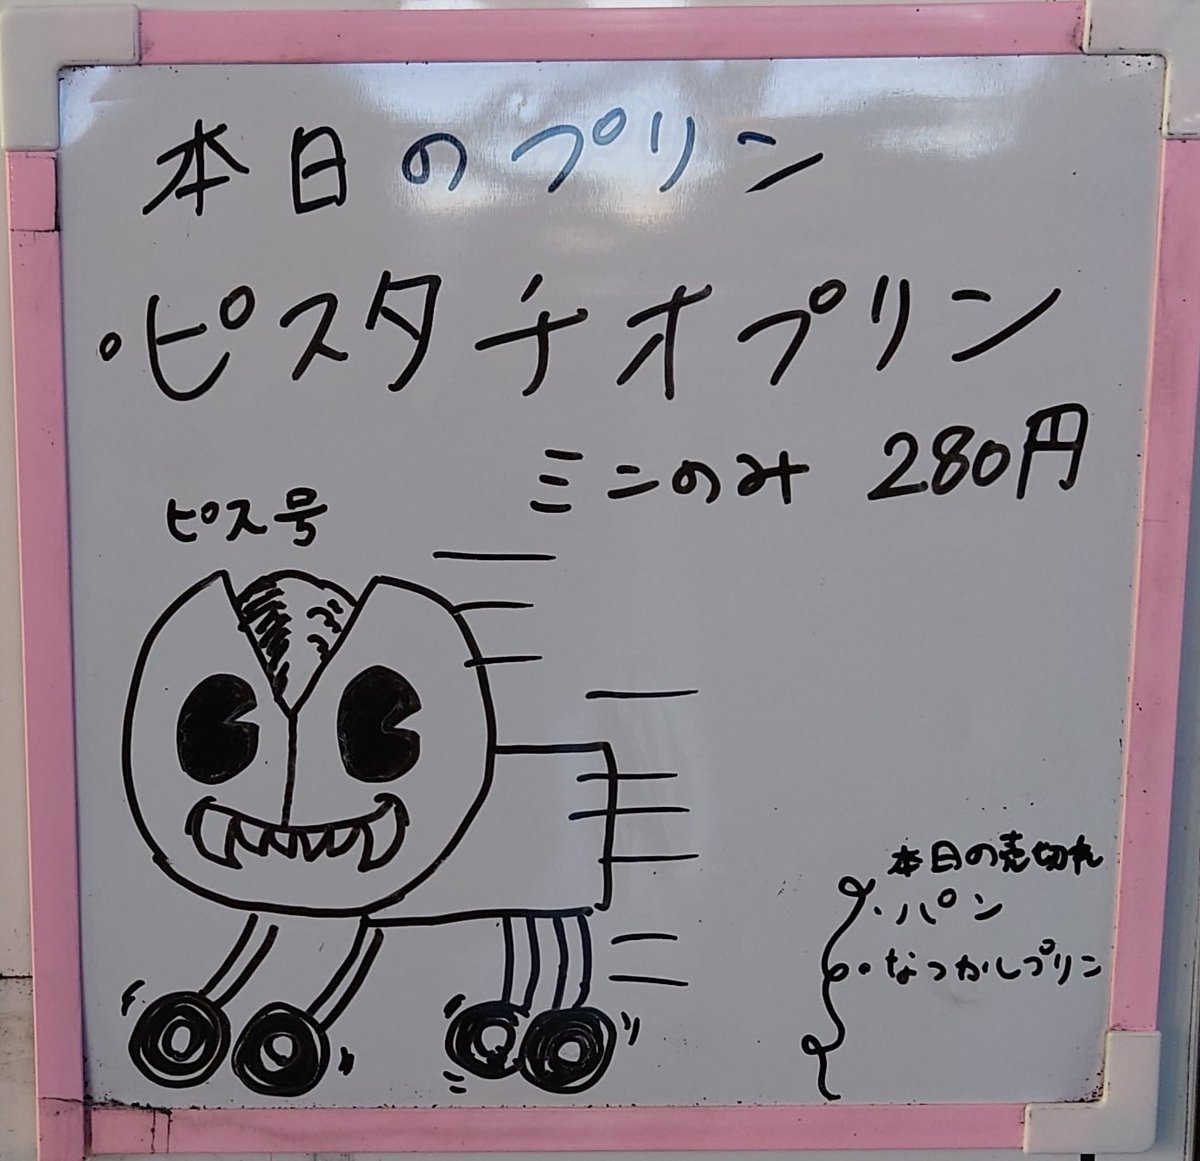 本日のプリン
・ピスタチオプリン
ミニのみ 280円
ピス号
本日の売切れ
・パン
・なつかしプリン